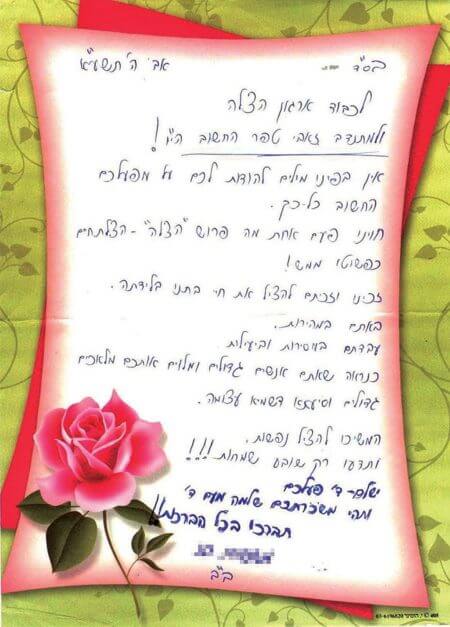 בס"ד אב ה'תשע"א
לכבוד ארגון הצלה
ולמתנדב זאבי טפר החשוב הי"ו!
אין בפינו מילים להודות לכם על מפעלכם
החשוב כל-כך.
חווינו פעם אחת מה פרוש "הצלה" - הצלתם
כפשוטו ממש!
זכינו וזכתם להציל את חיי בתנו בלידתה.
באתם במהירות.
עבדתם במסירות וביעילות.
כנראה שאתם אנשים גדולים ומלווים אותכם מלאכים
גדולים וסיעתא דשמיא עצומה.
המשיכו להציל נפשות.
ותדעו רק שובע שמחות!!!
ישלם ד' פעלכם
ותהי משכרתכם שלמה מעם ד'
תברכו בכל הברכות!!
ב"ב